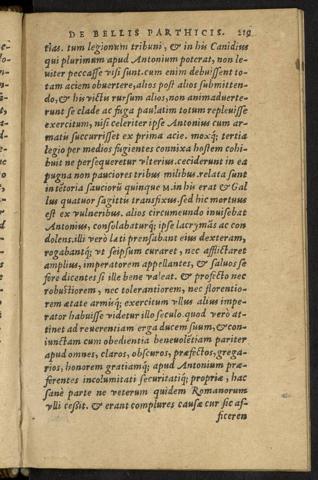 DE BELLIS PARTHICIS. 219
tias. tum legionum tribuni, & in his Canidius
qui plurimum apud Antonium poterat, non le
uiter peccasse visi sunt. cum enim debuissent to-
tam aciem obuertere, alios post alios submitten-
do, & his victu rursum alios, non animaduerte-
runt se clade ac fuga paulatim totum repleuisse
exercitum, nisi celeriter ipse Antonius cum ar-
matis succurrisset ex prima acie. moxq́; tertia
legio per medios fugientes connixa hostem cohi
buit ne persequeretur vlterius. ceciderunt in ea
pugna non pauciores tribus milibus. relata sunt
in tētoria sauciorū quinque M. in his erat & Gal
lus quatuor sagittis transfixus. sed hic mortuus
est ex vulneribus. alios circumeundo inuisebat
Antonius, consolabaturq́; ipse lacrymās ac con
dolens. illi verò lati prensabant eius dexteram,
rogabantq́; vt seipsum curaret, nec afflictaret
amplius, imperatorem appellantes, & saluos se
fore dicentes si ille bene valeat. & profectò nec
robustiorem, nec tolerantiorem, nec florentio-
rem ætate armisq́; exercitum vllus alius impe-
rator habuisse videtur illo seculo. quod verò at-
tinet ad reuerentiam erga ducem suum, & con-
iunctam cum obedientia beneuolētiam pariter
apud omnes, claros, obscuros, præfectos, grega-
rios, honorem gratiamq́; apud Antonium præ-
ferentes incolumitati securitatiq́; propriæ, hac
sanè parte ne veterum quidem Romanorum
vlli cessit. & erant complures causæ cur sic af-
ficeren